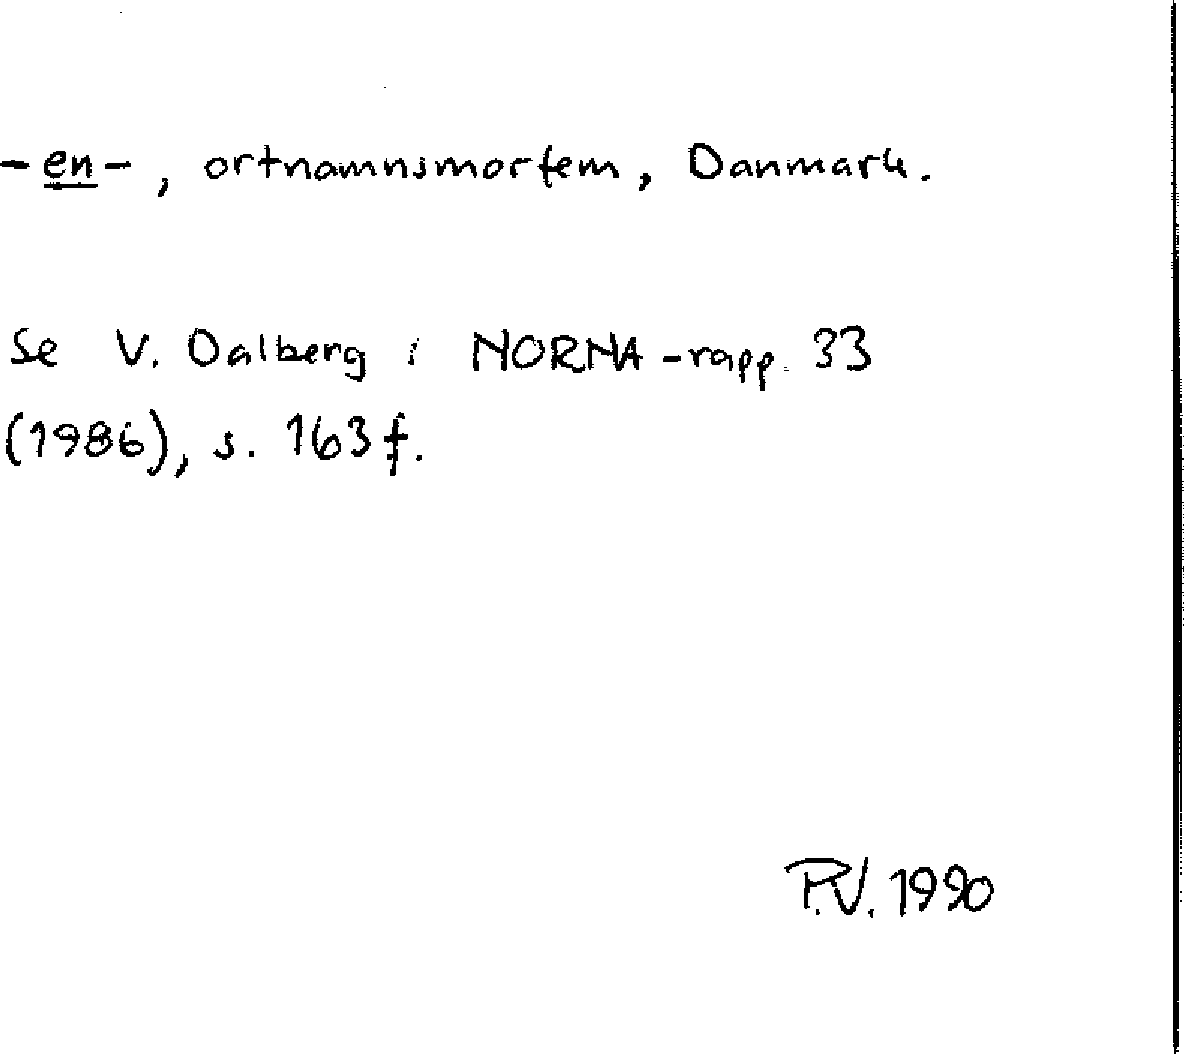 -en-, ortnamnsmorfem, Danmark.
Se V. Dalberg i NORNA-rapp. 33
(1986), s. 163 f.
P.V. 1990